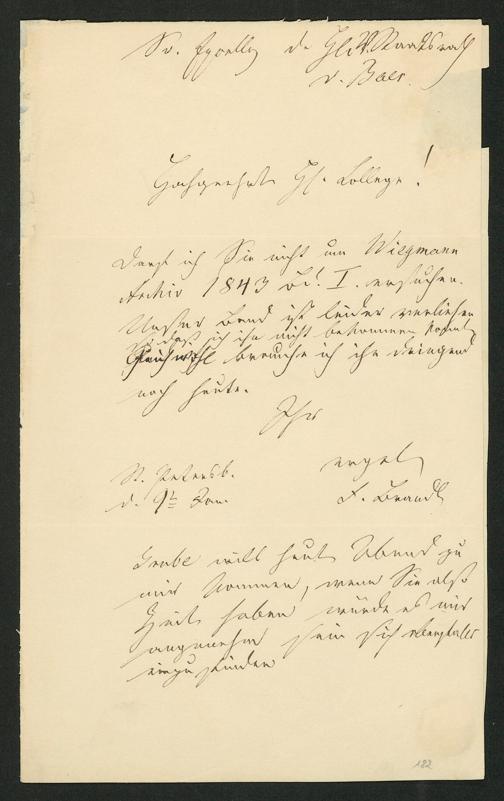 Sr. Excellenz d. H. Staatsrath
v. Baer.
Hochgeehrter Hr. College!
Darf ich Sie nicht um Wiegmann
Archiv 1843 Bd. I. ersuchen.
Unser Band ist leider verliehen
so daß ich ihn nicht bekommen konnte
Gleichwohl brauche ich ihn dringend
noch heute.
Ihr
St. Petersb. ergeb.
d. 9t Jan. F. Brandt
Grube will heut Abend zu
mir kommen, wenn Sie also
Zeit haben würde es mir
angenehm sein sich ebenfalls
einzufinden
182